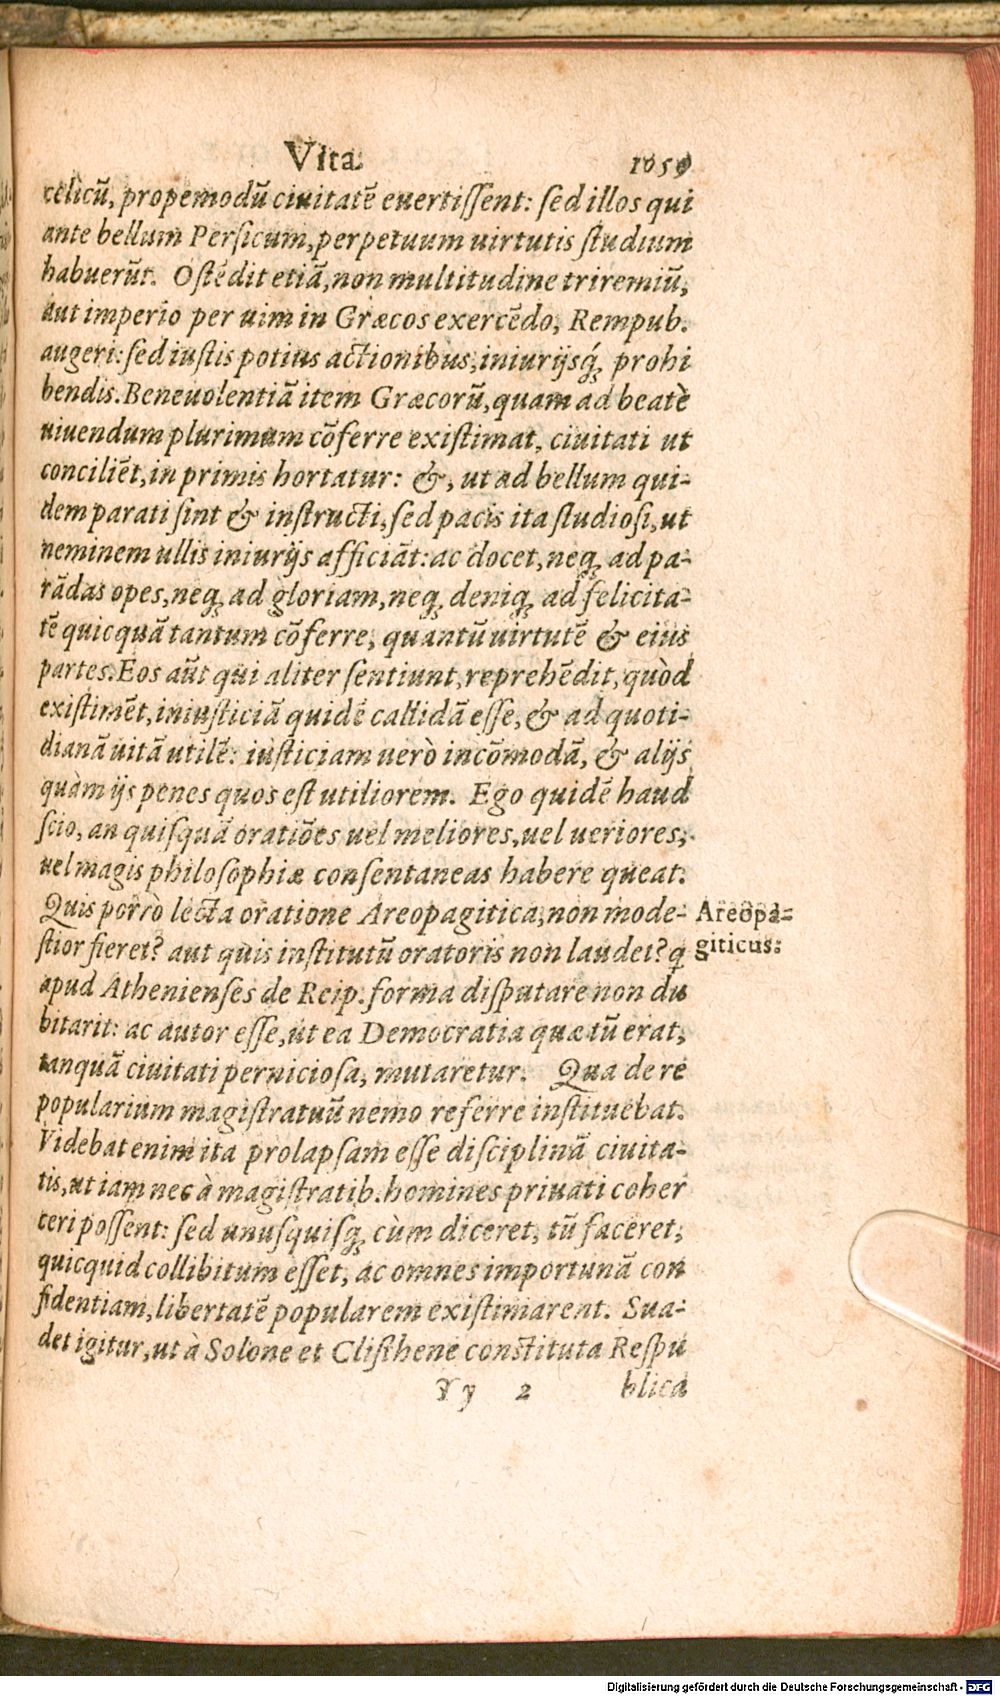 Vita. 1059
celicũ, propemodũ ciuitatẽ euertissent: sed illos qui
ante bellum Persicum, perpetuum uirtutis studium
habuerũt. Ostẽdit etiã, non multitudine triremiũ,
aut imperio per uim in Græcos exercẽdo, Rempub.
augeri: sed iustis potius actionibus, iniurijsq́; prohi
bendis. Beneuolentiã item Græcorũ, quam ad beatè
uiuendum plurimum cõferre existimat, ciuitati ut
conciliẽt, in primis hortatur: &, ut ad bellum qui-
dem parati sint & instructi, sed pacis ita studiosi, ut
neminem ullis iniurijs afficiãt: ac docet, neq; ad pa-
rãdas opes, neq; ad gloriam, neq; deniq; ad felicita-
tẽ quicquã tantum cõferre, quantũ uirtutẽ & eius
partes. Eos aũt qui aliter sentiunt, reprehẽdit, quòd
existimẽt, iniusticiã quidẽ callidã esse, & ad quoti-
dianã uitã utilẽ: iusticiam uerò incõmodã, & alijs
quàm ijs penes quos est utiliorem. Ego quidẽ haud
scio, an quisquã oratiões uel meliores, uel ueriores,
uel magis philosophiæ consentaneas habere queat.
Quis porrò lecta oratione Areopagitica, non mode-
stior fieret? aut quis institutũ oratoris non laudet? q̃
apud Athenienses de Reip. forma disputare non du
bitarit: ac autor esse, ut ea Democratia quæ tũ erat,
tanquã ciuitati perniciosa, mutaretur. Qua de re
popularium magistratuũ nemo referre instituebat.
Videbat enim ita prolapsam esse disciplinã ciuita-
tis, ut iam nec à magistratib. homines priuati coher
ceri possent: sed unusquisq; cùm diceret, tũ faceret,
quicquid collibitum esset, ac omnes importunã con
fidentiam, libertatẽ popularem existimarent. Sua-
det igitur, ut à Solone et Clisthene constituta Respu
Yy 2 blica
Areopa-
giticus.
Digitalisierung gefördert durch die Deutsche Forschungsgemeinschaft - DFG